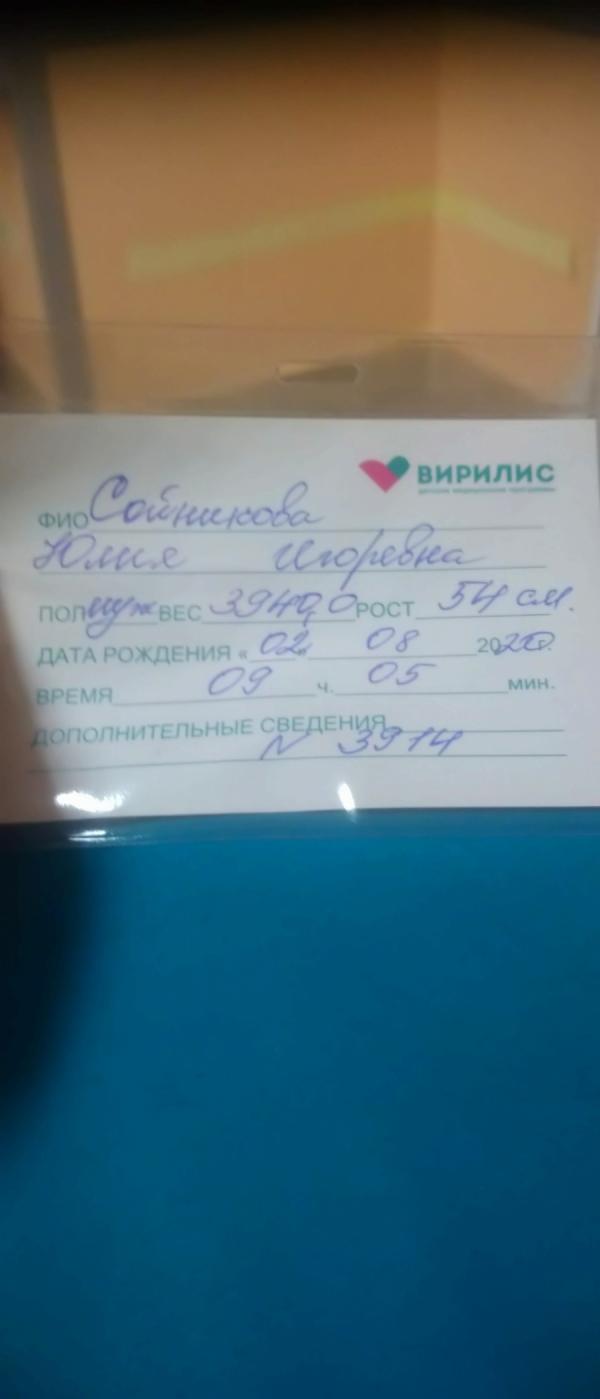 ВИРИЛИС
ФИО Сойникова
Юлия Игоревна
ПОЛ муж ВЕС 3940,0 РОСТ 54 см.
ДАТА РОЖДЕНИЯ « 02 » 08 2020.
ВРЕМЯ 09 ч. 05 мин.
ДОПОЛНИТЕЛЬНЫЕ СВЕДЕНИЯ
N 3914